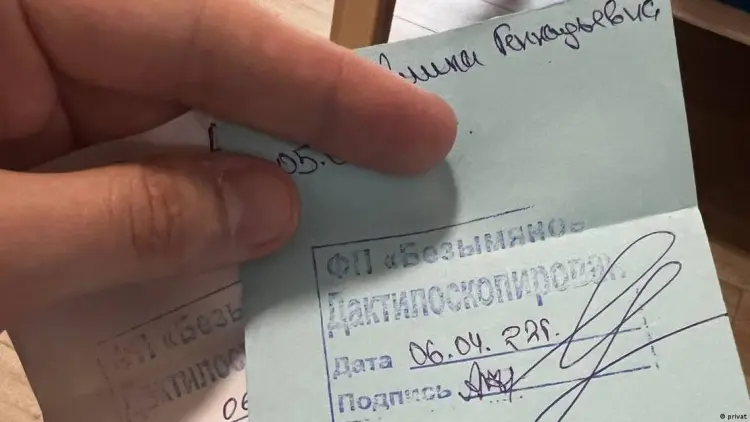 Геннадьевич
05.
ФП «Безымяное»
Дактилоскопирован
Дата 06.04.22г.
Подпись
ФП «Безы
Дактилос
06
© privat